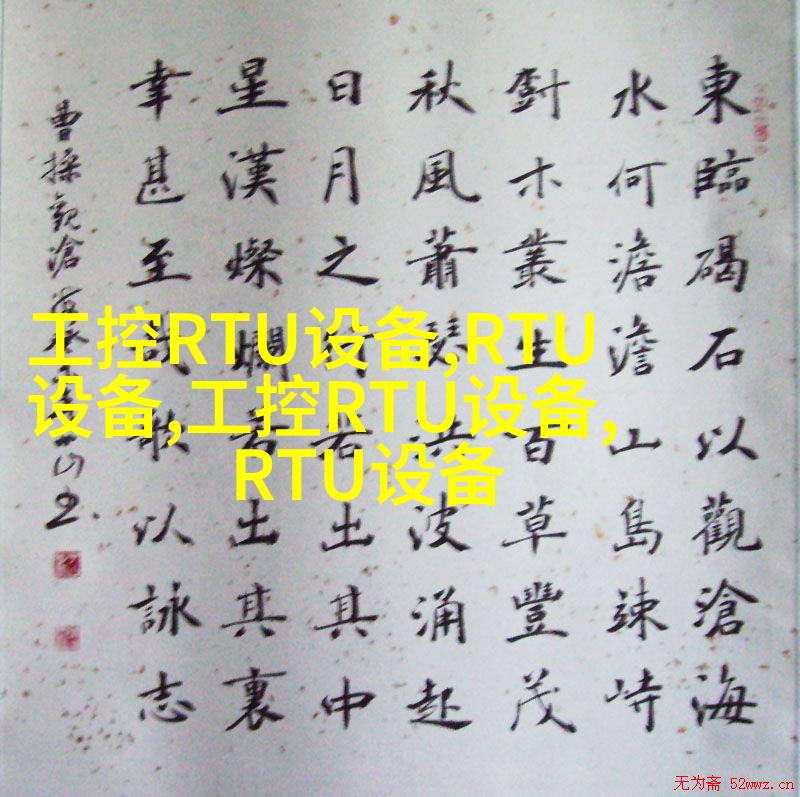 東臨碣石以觀滄海
水何澹澹山島竦峙
木叢生百草豐茂
秋風蕭瑟洪波涌起
日月之行若出其中
星漢燦爛若出其裏
幸甚至哉歌以詠志
曹操觀滄
工控RTU设备,RTU
设备,工控RTU设备,
RTU设备
无为斋 52wwz.cn